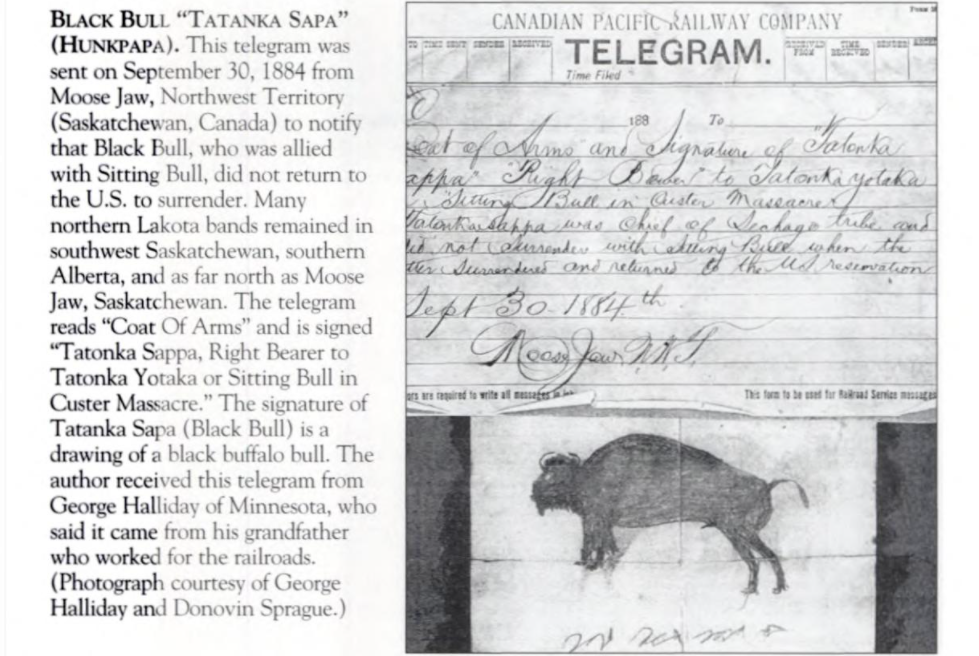 BLACK BULL “TATANKA SAPA”
(HUNKPAPA). This telegram was
sent on September 30, 1884 from
Moose Jaw, Northwest Territory
(Saskatchewan, Canada) to notify
that Black Bull, who was allied
with Sitting Bull, did not return to
the U.S. to surrender. Many
northern Lakota bands remained in
southwest Saskatchewan, southern
Alberta, and as far north as Moose
Jaw, Saskatchewan. The telegram
reads “Coat Of Arms” and is signed
“Tatonka Sappa, Right Bearer to
Tatonka Yotaka or Sitting Bull in
Custer Massacre.” The signature of
Tatanka Sapa (Black Bull) is a
drawing of a black buffalo bull. The
author received this telegram from
George Halliday of Minnesota, who
said it came from his grandfather
who worked for the railroads.
(Photograph courtesy of George
Halliday and Donovin Sprague.)
CANADIAN PACIFIC RAILWAY COMPANY
TO TIME SENT SENDER RECEIVED
TELEGRAM.
RECEIVED FROM TIME RECEIVED SENDER
Time Filed
188 To
Coat of Arms and Signature of "Tatonka
appa" "Right Bower" to Tatonka yotaka
"Sitting Bull in Custer Massacre
Tatonka Sappa was Chief of tribe and
did not Surrender with Sitting Bull when the
tter Surrendered and returned to the U.S. reservation
Sept 30 1884th
Moose Jaw N.W.T.
ors are required to write all messages in ink
This form to be used for Railroad Service messages